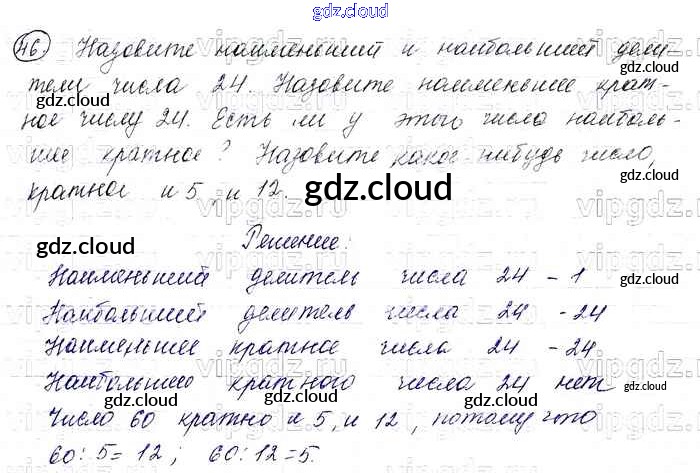 gdz.cloud
46. Назовите наименьший и наибольший дели-
тели числа 24. Назовите наименьшее крат-
gdz.cloud
gdz.cloud
ное числу 24. Есть ли у этого числа наиболь-
gdz.cloud
шее кратное? Назовите какое-нибудь число,
gdz.cloud
кратное и 5, и 12.
gdz.cloud
vipgdz.ru
Решение:
gdz.cloud
Наименьший делитель числа 24 - 1
gdz.cloud
Наибольший делитель числа 24 - 24
Наименьшее кратное числа 24 - 24
Наибольшего кратного числа 24 нет
gdz.cloud
gdz.cloud
gdz.cloud
Число 60 кратно и 5, и 12, потому что
60 : 5 = 12 ; 60 : 12 = 5.
gdz.cloud